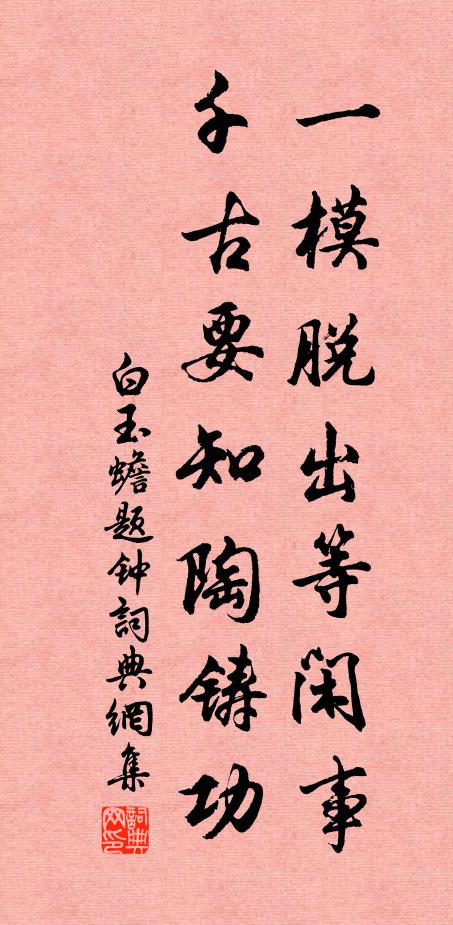 一模脱出等闲事
千古要知陶铸功
白玉蟾题钟詞典網集
詞典网印